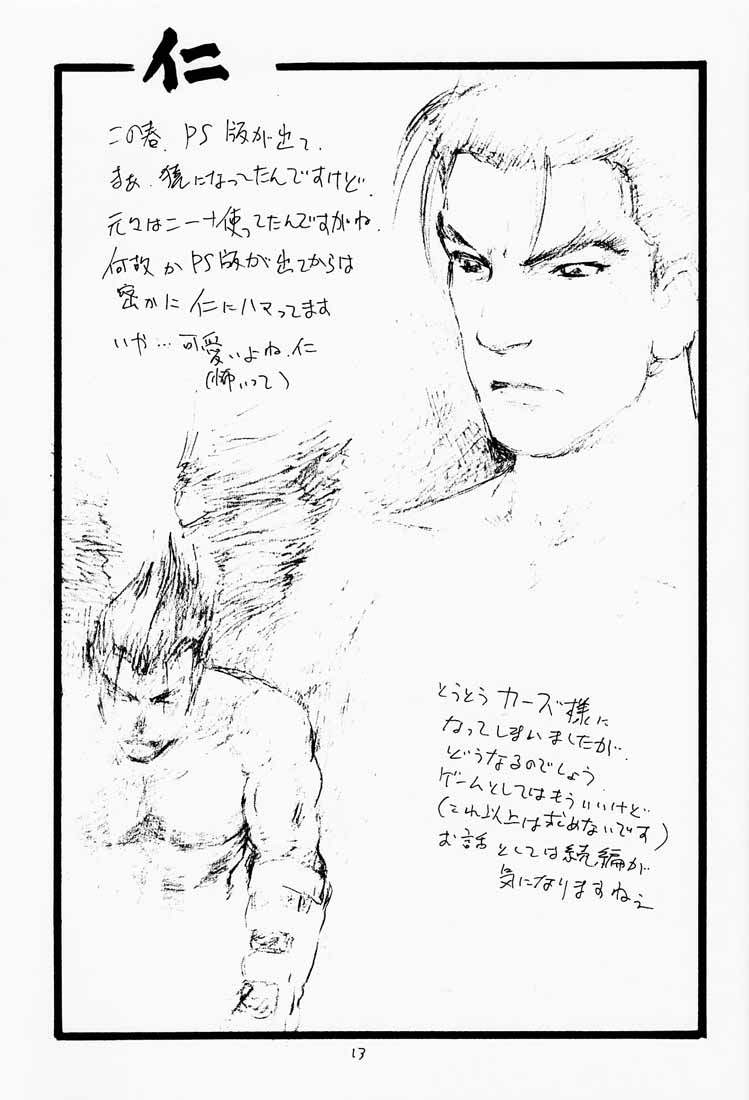 仁
この春、PS版が出て、
まぁ、猿になってたんですけど、
元々はニーナ使ってたんですがね、
何故かPS版が出てからは
密かに仁にハマってます
いや…可愛いよね、仁
(怖いって)
とうとうカーズ様に
なってしまいましたが、
どうなるのでしょう
ゲームとしてはもういいけど
(これ以上は求めないです)
お話としては続編が
気になりますねぇ
13